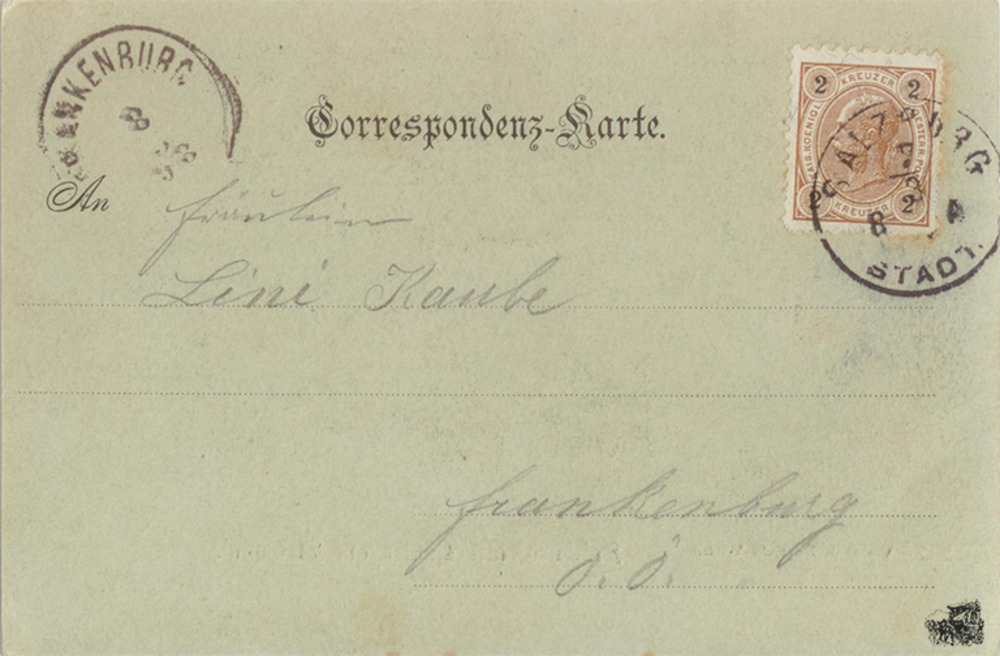 FRANKENBURG
8
Correspondenz-Karte.
2 KREUZER 2
KAIS. KOENIGL. OESTERR. POST
2 KREUZER 2
SALZBURG
8
STADT.
An Fräulein
Line Kaube
Frankenburg
O. Ö.